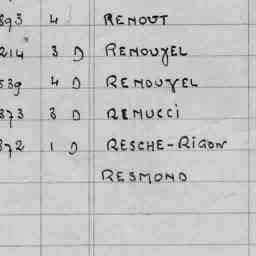 393 4 RENOUT
214 3 D RENOUXEL
539 4 D RENOUXEL
373 3 D RENUCCI
372 1 D RESCHE-RIGON
RESMOND